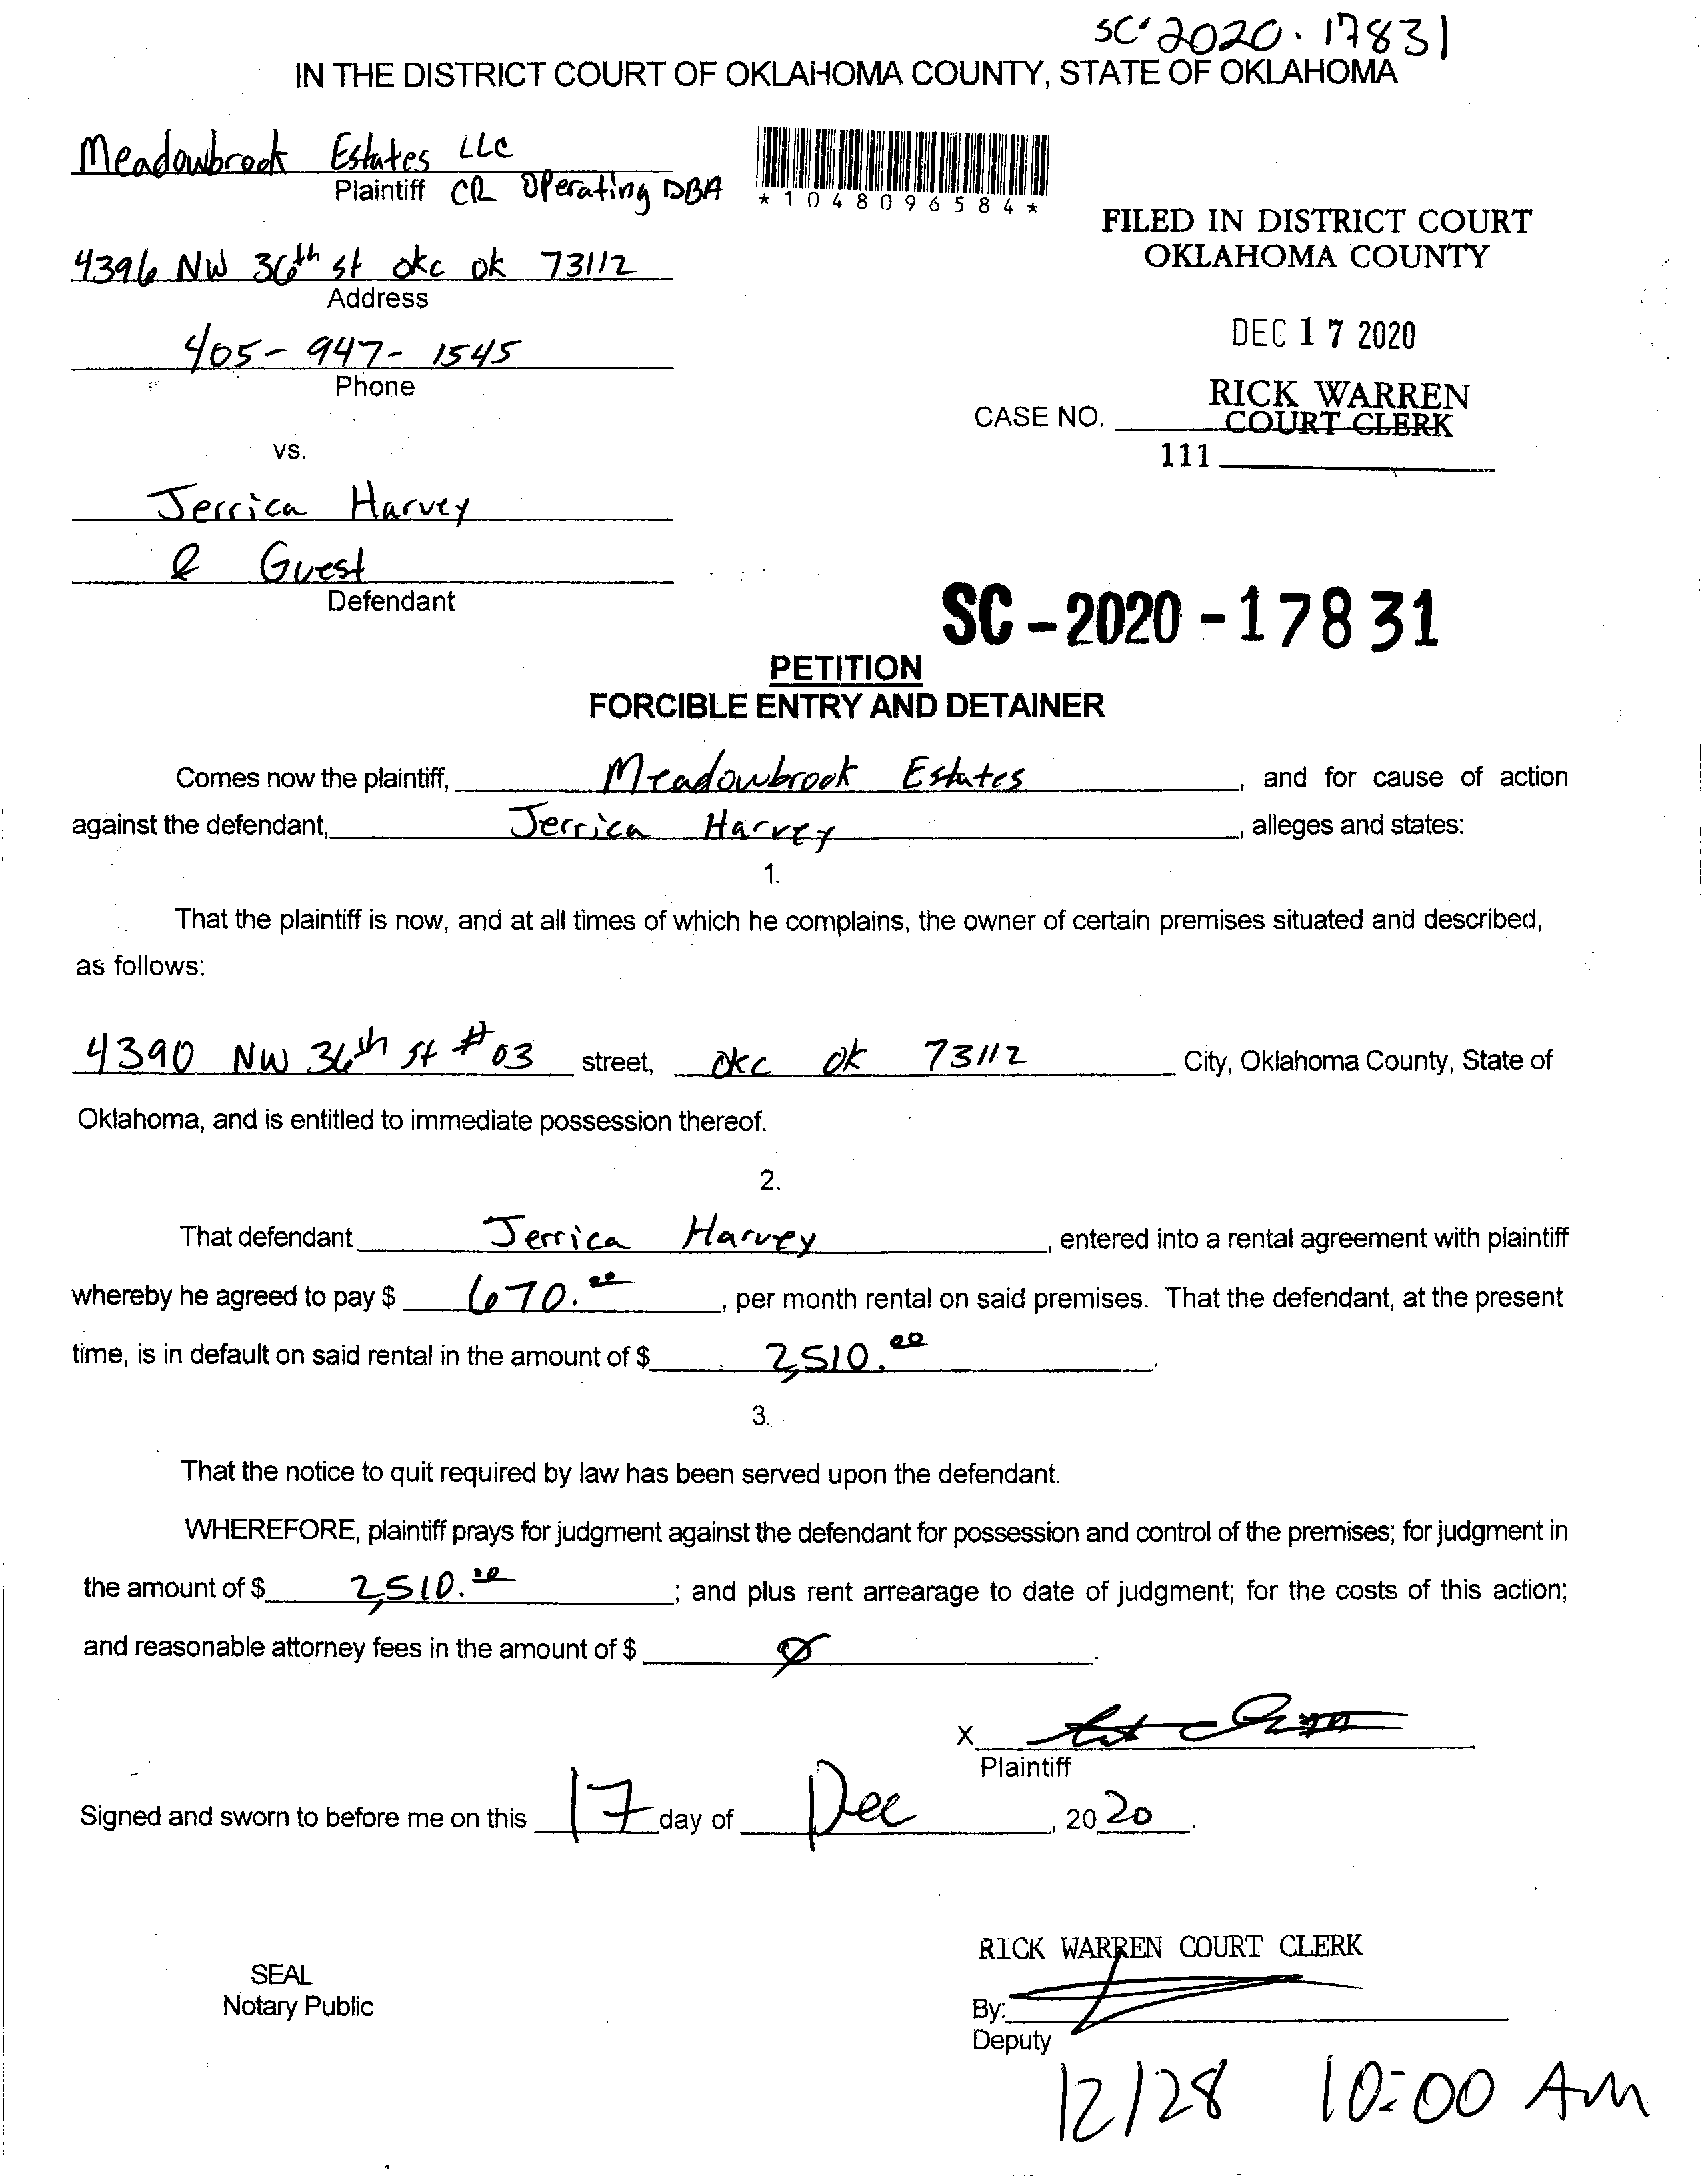 SC-2020-17831
IN THE DISTRICT COURT OF OKLAHOMA COUNTY, STATE OF OKLAHOMA
Meadowbrook Estates LLC
Plaintiff CR Operating DBA
*1048096584*
FILED IN DISTRICT COURT
OKLAHOMA COUNTY
4396 NW 36th st okc ok 73112
Address
DEC 17 2020
405-947-1545
Phone
RICK WARREN
CASE NO. COURT CLERK
111
vs.
Jerrica Harvey
& Guest
Defendant
SC-2020-17831
PETITION
FORCIBLE ENTRY AND DETAINER
Comes now the plaintiff, Meadowbrook Estates, and for cause of action
against the defendant, Jerrica Harvey, alleges and states:
1.
That the plaintiff is now, and at all times of which he complains, the owner of certain premises situated and described,
as follows:
4390 NW 36th st #03 street, okc ok 73112 City, Oklahoma County, State of
Oklahoma, and is entitled to immediate possession thereof.
2.
That defendant Jerrica Harvey, entered into a rental agreement with plaintiff
whereby he agreed to pay $ 670.00, per month rental on said premises. That the defendant, at the present
time, is in default on said rental in the amount of $ 2,510.00.
3.
That the notice to quit required by law has been served upon the defendant.
WHEREFORE, plaintiff prays for judgment against the defendant for possession and control of the premises; for judgment in
the amount of $ 2,510.00; and plus rent arrearage to date of judgment; for the costs of this action;
and reasonable attorney fees in the amount of $ Ø.
X
Plaintiff
Signed and sworn to before me on this 17 day of Dec, 2020.
RICK WARREN COURT CLERK
SEAL
Notary Public
By:
Deputy
12/28 10:00 AM